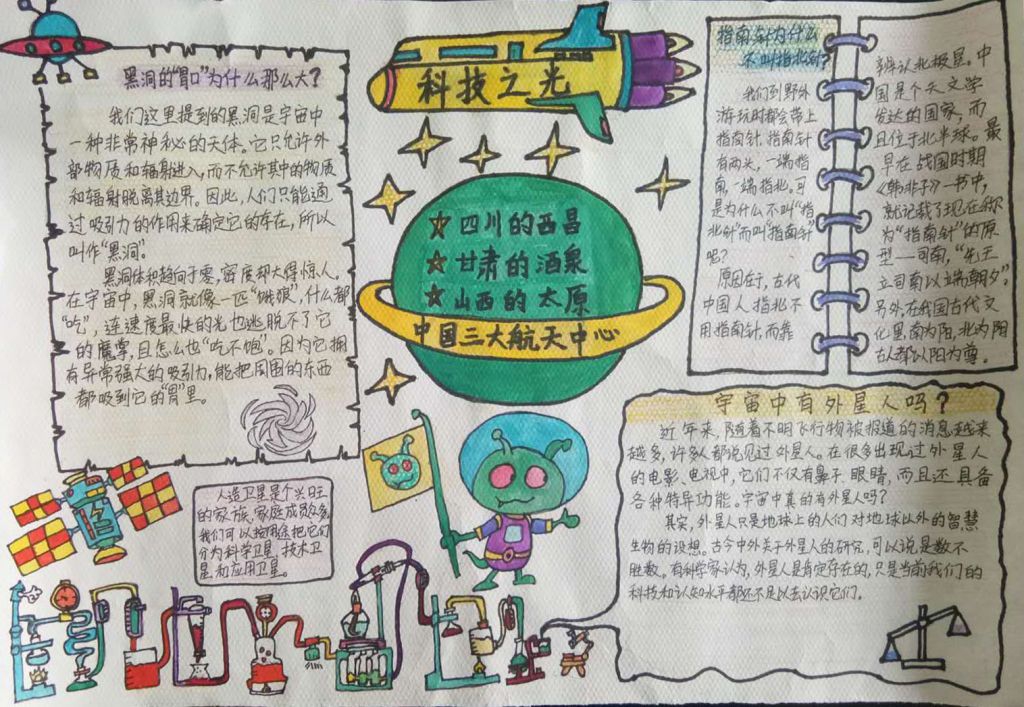 科技之光
黑洞的"胃口"为什么那么大？
我们这里提到的黑洞是宇宙中
一种非常神秘的天体。它只允许外
部物质和辐射进入，而不允许其中的物质
和辐射脱离其边界。因此，人们只能通
过吸引力的作用来确定它的存在，所以
叫作"黑洞"。
黑洞体积趋向于零，密度却大得惊人。
在宇宙中，黑洞就像一匹"饿狼"，什么都
"吃"，连速度最快的光也逃脱不了它
的魔掌，且怎么也"吃不饱"。因为它拥
有异常强大的吸引力，能把周围的东西
都吸到它的"胃"里。
四川的西昌
甘肃的酒泉
山西的太原
中国三大航天中心
指南针为什么
不叫指北针？
我们到野外
游玩时都会带上
指南针，指南针
有两头，一端指
南，一端指北。可
是为什么不叫"指
北针"而叫"指南针"
呢？
原因在于，古代
中国人指北不
用指南针，而靠
辨认北极星。中
国是个天文学
发达的国家，而
且位于北半球。最
早在战国时期
《韩非子》一书中，
就记载了现在称
为"指南针"的原
型——司南，"先王
立司南以端朝夕"。
另外，在我国古代文
化里，南为阳，北为阴
古人都以阳为尊。
人造卫星是个兴旺
的家族，家庭成员众多
我们可以按用途把它们
分为科学卫星、技术卫
星和应用卫星。
宇宙中有外星人吗？
近年来，随着不明飞行物被报道的消息越来
越多，许多人都说见过外星人。在很多出现过外星人
的电影、电视中，它们不仅有鼻子、眼睛，而且还具备
各种特异功能。宇宙中真的有外星人吗？
其实，外星人只是地球上的人们对地球以外的智慧
生物的设想。古今中外关于外星人的研究，可以说是数不
胜数。有科学家认为，外星人是肯定存在的，只是当前我们的
科技和认知水平都还不足以去认识它们。